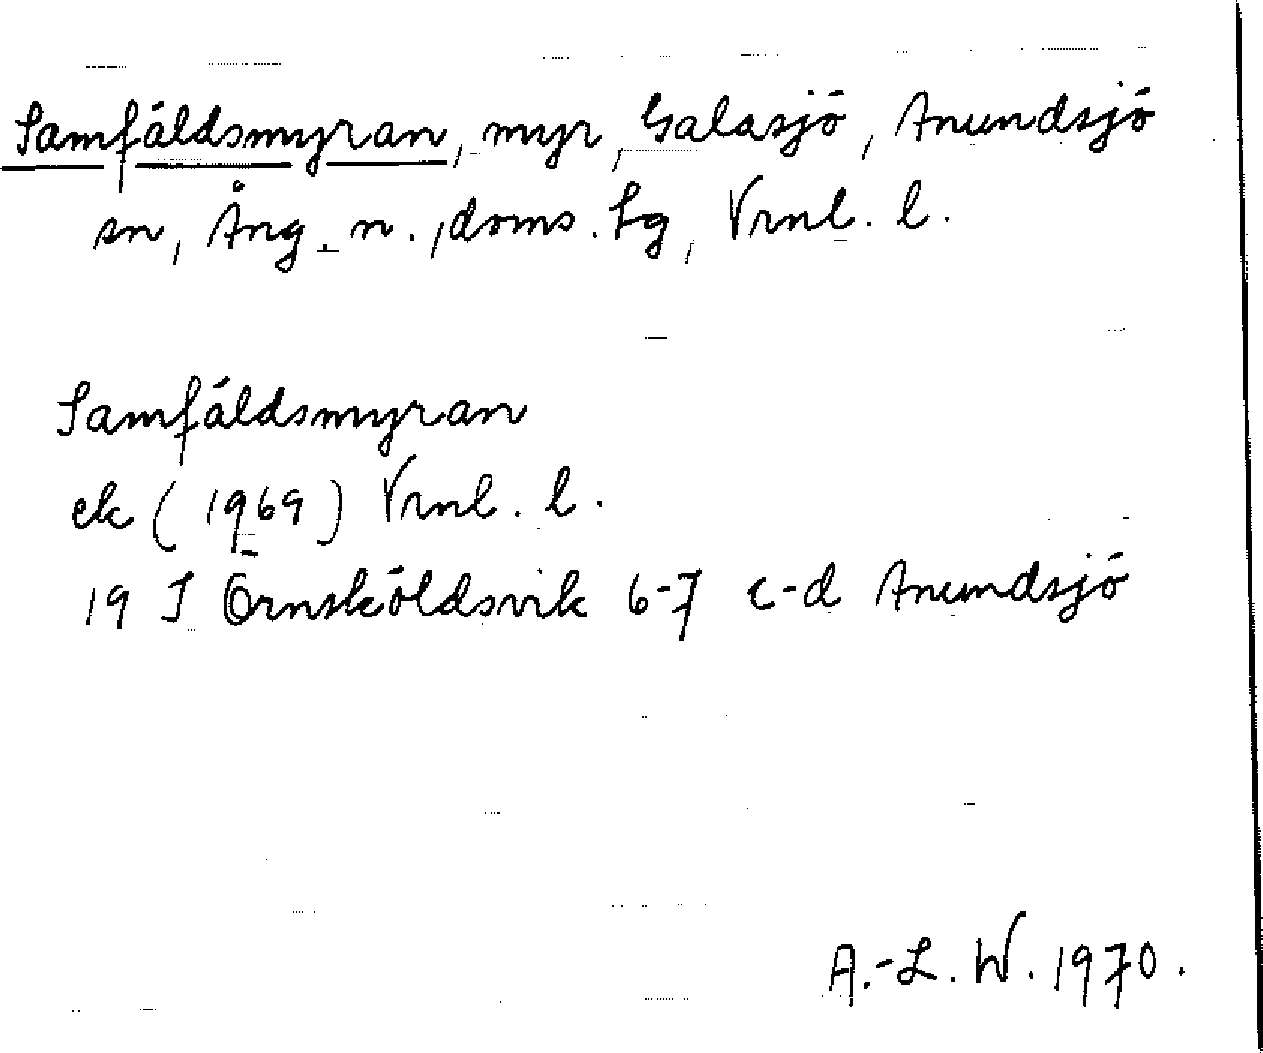 Samfäldsmyran, myr, Galasjö, Anundsjö
sn, Ång. n., doms. fg, Vrnl. l.
Samfäldsmyran
ek (1969) Vrnl. l.
19 J Örnsköldsvik 6-7 c-d Anundsjö
A.-L. W. 1970.